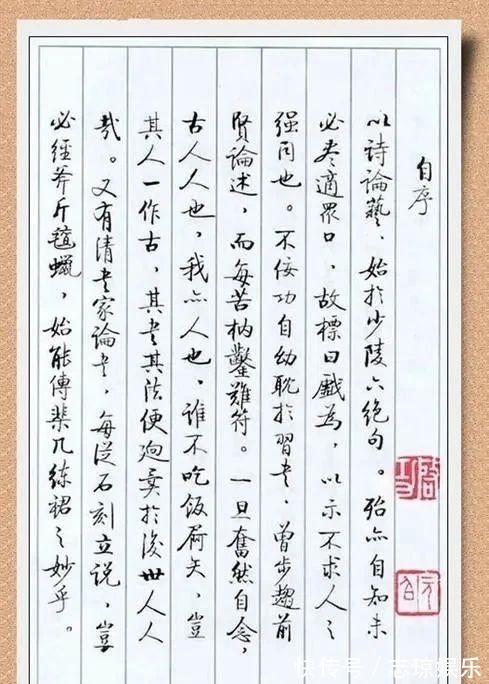 自序
以詩論藝，始於少陵六絕句。殆亦自知未
必盡適眾口，故標曰戲為，以示不求人之
强同也。不佞功自幼耽於習書，曾步趨前
賢論述，而每苦枘鑿難符。一旦奮然自念，
古人人也，我亦人也，誰不吃飯屙矢，豈
其人一作古，其書其法便迥異於後世人人
哉。又有清書家論書，每從石刻立說，豈
必經斧斤氈蠟，始能傳棐几練裙之妙乎。
快传号 / 志琼娱乐